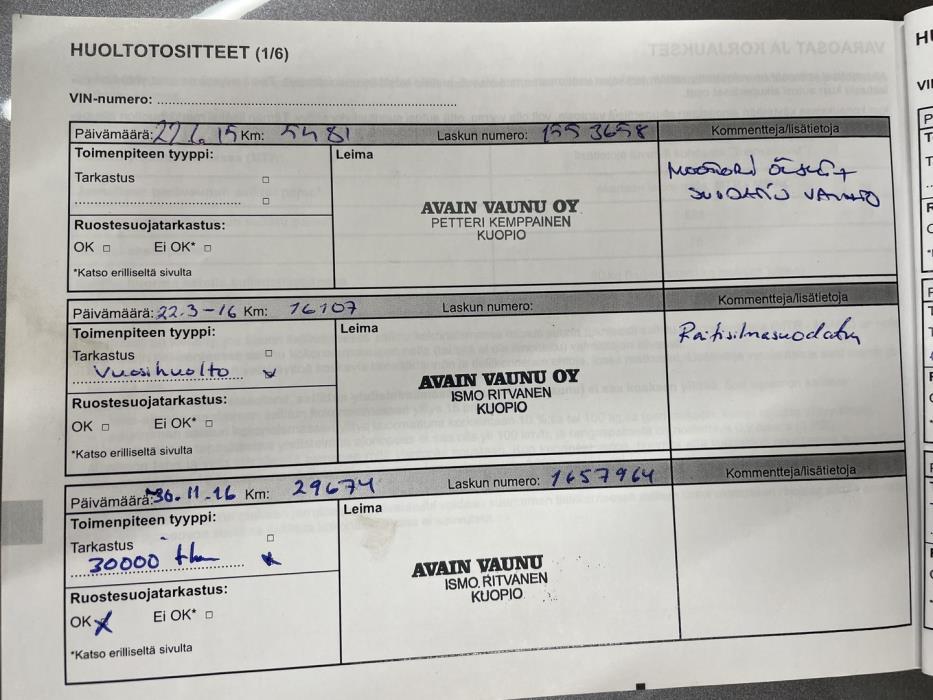 HUOLTOTOSITTEET (1/6)
VIN-numero:
Päivämäärä: 22.6.15 Km: 5481 Laskun numero: 1553658 Kommentteja/lisätietoja
Toimenpiteen tyyppi: Leima
Tarkastus
AVAIN VAUNU OY
PETTERI KEMPPAINEN
KUOPIO
Ruostesuojatarkastus:
OK Ei OK*
*Katso erilliseltä sivulta
MOOTTORI ÖLJYT
SUODATIN VAIHTO
Päivämäärä: 22.3-16 Km: 16107 Laskun numero: Kommentteja/lisätietoja
Toimenpiteen tyyppi: Leima
Tarkastus
Vuosihuolto
AVAIN VAUNU OY
ISMO RITVANEN
KUOPIO
Ruostesuojatarkastus:
OK Ei OK*
*Katso erilliseltä sivulta
Raitisilmasuodatin
Päivämäärä: 30.11-16 Km: 29674 Laskun numero: 1657964 Kommentteja/lisätietoja
Toimenpiteen tyyppi: Leima
Tarkastus
30000 tkm
AVAIN VAUNU
ISMO RITVANEN
KUOPIO
Ruostesuojatarkastus:
OK Ei OK*
*Katso erilliseltä sivulta